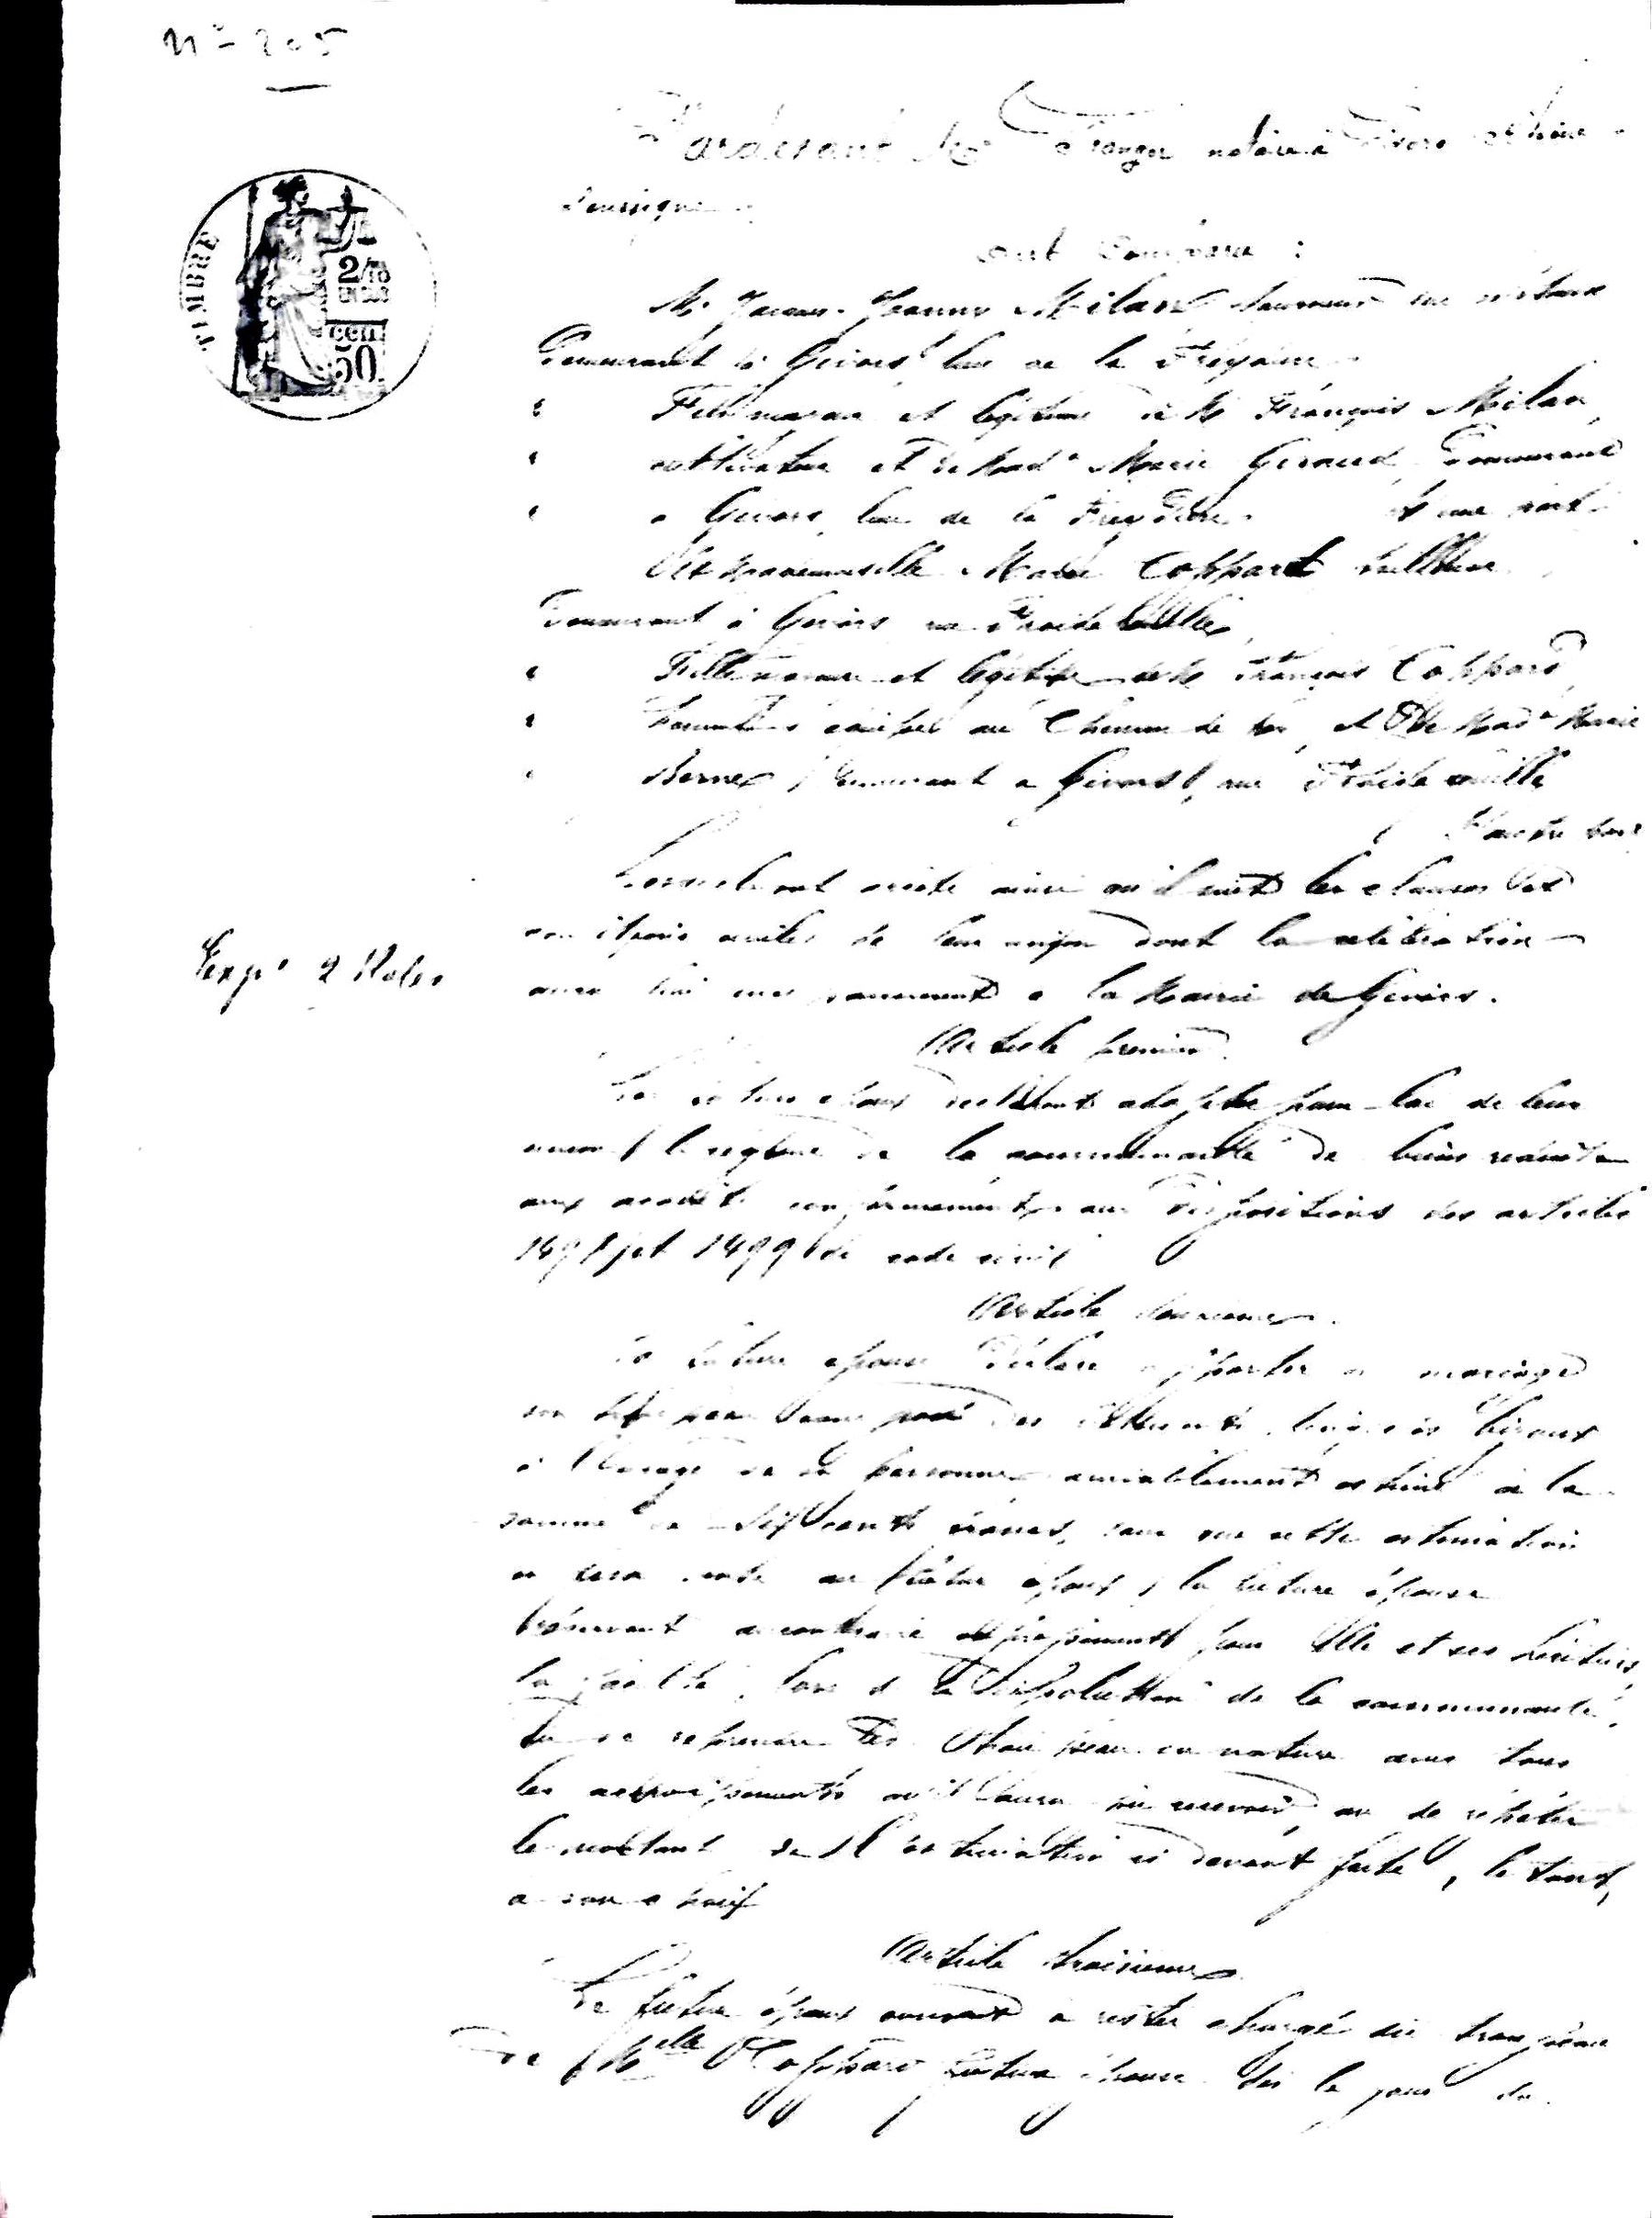 N° 205
TIMBRE
2/10
EN SUS
cent
50
Pardevant Me notaire à Givors
soussigné
ont comparu :
Mr Jeannus Milan tourneur sur métaux
Demeurant à Givors lieu de la Freydière
Fils majeur et légitime de Mr François Milan,
cultivateur et de Made Marie Giraud, Demeurant
à Givors, lieu de la Freydière. D'une part.
Et Mademoiselle Marie Coppard tailleuse
Demeurant à Givors rue
Fille mineure et légitime de Mr François Coppard,
au Chemin de fer, et De Made Marie
Berne, Demeurant à Givors, rue
D'autre part
Lesquels ont arrêté ainsi qu'il suit les clauses et
conditions civiles de leur union dont la célébration
aura lieu incessamment à la Mairie de Givors.
Expn 2 Roles
Article premier
Les futurs époux déclarent adopter pour base de leur
union le régime de la communauté de biens réduite
aux acquêts conformément aux dispositions des articles
1498 et 1499 du code civil
Article deuxième.
La future épouse Déclare apporter en mariage
son trousseau composé des vêtements, linges et bijoux
à l'usage de sa personne amiablement estimé à la
somme de cents francs, sans que cette estimation
en fasse vente au futur époux, la future épouse
réservant au contraire expressément pour Elle et ses héritiers,
la faculté, lors de la dissolution de la communauté,
de reprendre ses trousseau en nature avec tous
les accroissements qu'il aura pu recevoir, ou de répéter
le montant de l'estimation ci devant faite, le tout,
à son choix
Article troisième
Le futur époux consent à rester chargé du trousseau
de Melle Coppard future épouse dès le jour du